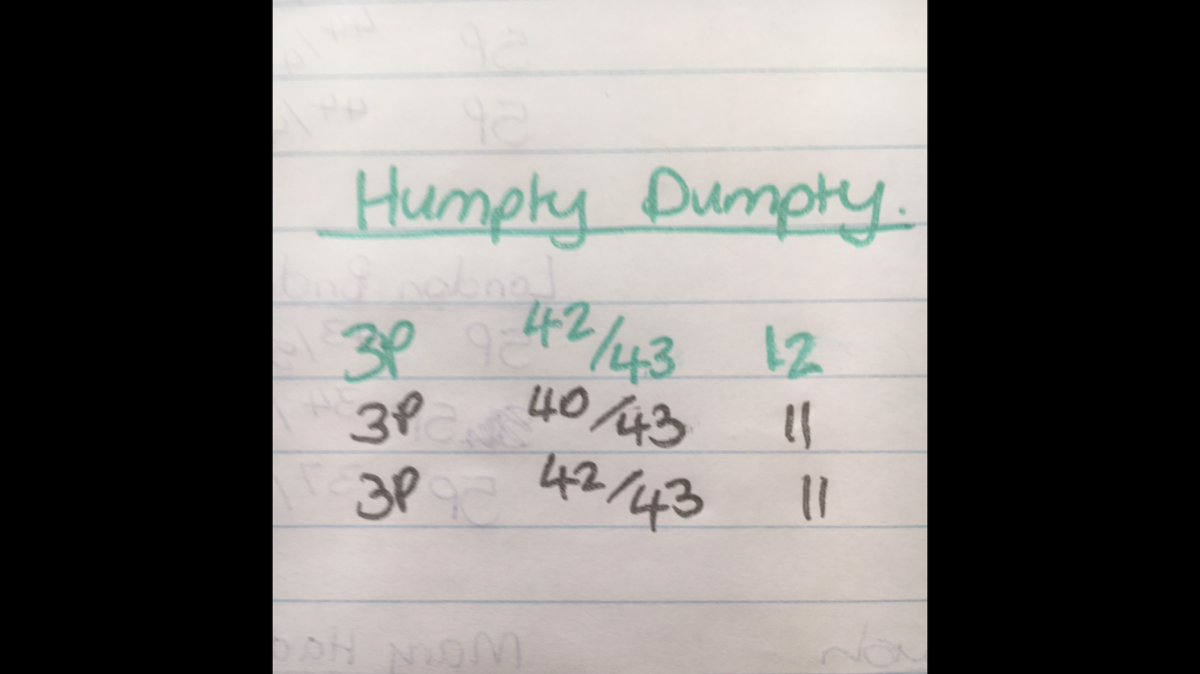 Humpty Dumpty.
3P 42/43 12
3P 40/43 11
3P 42/43 11